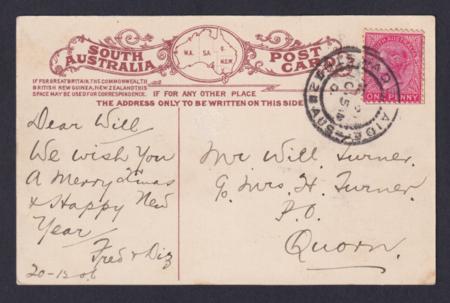 SOUTH AUSTRALIA
POST CARD
W.A. S.A. Q. N.S.W.
IF FOR GREAT BRITAIN, THE COMMONWEALTH,
BRITISH NEW GUINEA, NEW ZEALAND THIS
SPACE MAY BE USED FOR CORRESPONDENCE.
IF FOR ANY OTHER PLACE
THE ADDRESS ONLY TO BE WRITTEN ON THIS SIDE
ONE PENNY
Dear Will
We wish You
A Merry Xmas
& Happy New
Year
Fred & Diz
20-12-06
Mr Will Turner.
C/o Mrs. H. Turner
P.O.
Quorn.